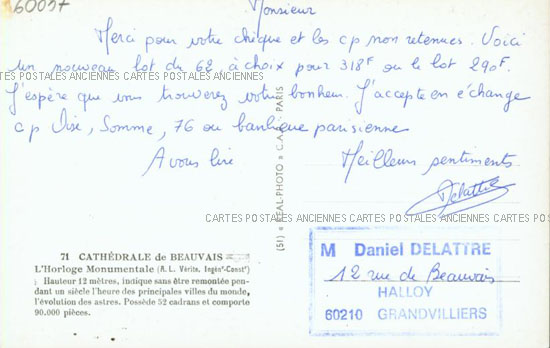 160097
Monsieur
Merci pour votre chèque et les cp non retenues. Voici
un nouveau lot du 62 à choix pour 318F ou le lot 290F.
CARTES POSTALES ANCIENNES CARTES POSTALES ANCIENNES CARTES POSTALES ANCIENNES
J'espère que vous trouverez votre bonheur. J'accepte en échange
cp Oise, Somme, 76 ou banlieue parisienne
A vous lire
Meilleurs sentiments.
Delattre
(51) « REAL-PHOTO » C.A.P. PARIS
CARTES POSTALES ANCIENNES CARTES POSTALES ANCIENNES CARTES POSTALES ANCIENNES
71 CATHÉDRALE de BEAUVAIS
L'Horloge Monumentale (A. L. Vérité, Ingén.-Const.)
Hauteur 12 mètres, indique sans être remontée pen-
dant un siècle l'heure des principales villes du monde,
l'évolution des astres. Possède 52 cadrans et comporte
90.000 pièces.
M Daniel DELATTRE
12 rue de Beauvais
HALLOY
60210 GRANDVILLIERS